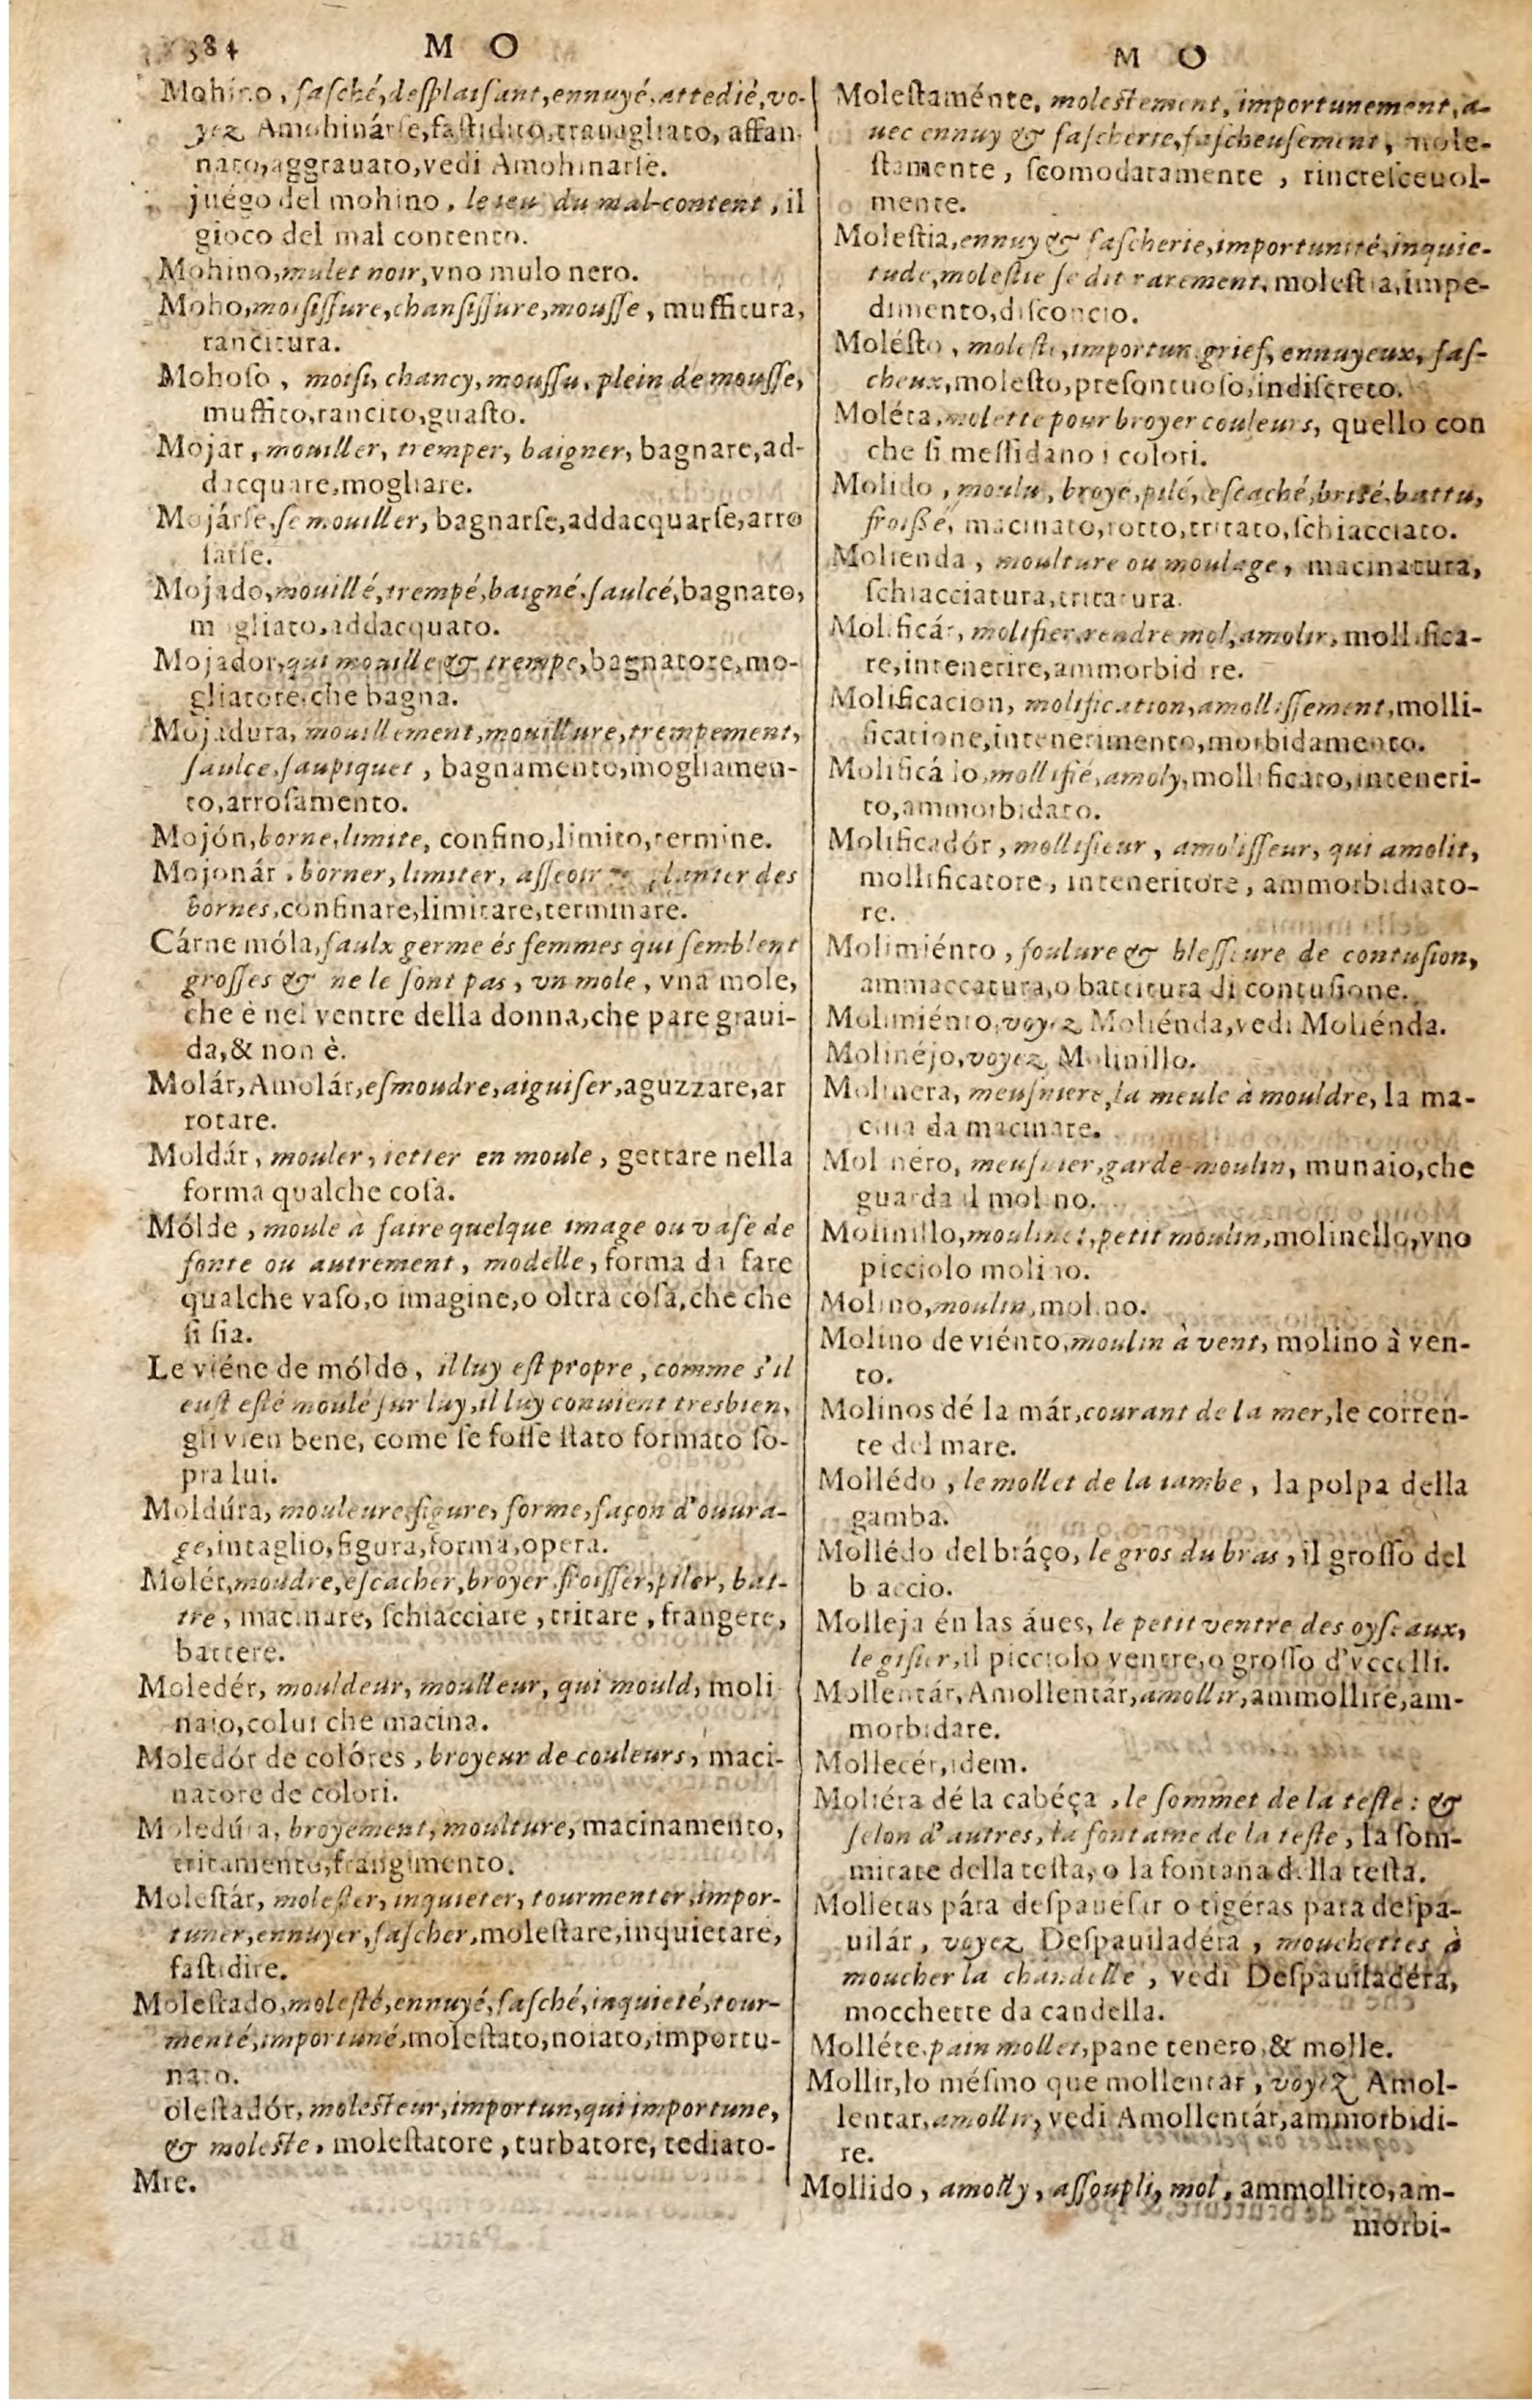 384 M O
Mohino, faſché, deſplaiſant, ennuyé, attedié, vo-
yez Amohinárſe, faſtidito, trauagliato, affan-
nato, aggrauato, vedi Amohinarſe.
juégo del mohino, le ieu du mal-content, il
gioco del mal contento.
Mohino, mulet noir, vno mulo nero.
Moho, moiſiſſure, chanſiſſure, mouſſe, muffitura,
rancitura.
Mohoſo, moiſi, chancy, mouſſu, plein de mouſſe,
muffito, rancito, guaſto.
Mojar, mouiller, tremper, baigner, bagnare, ad-
dacquare, mogliare.
Mojárſe, ſe mouiller, bagnarſe, addacquarſe, arro
ſarſe.
Mojado, mouillé, trempé, baigné, ſaulcé, bagnato,
mogliato, addacquato.
Mojador, qui mouille & trempe, bagnatore, mo-
gliatore, che bagna.
Mojadura, mouillement, mouillure, trempement,
ſaulce, ſaupiquet, bagnamento, mogliamen-
to, arroſamento.
Mojón, borne, limite, confino, limito, termine.
Mojonár, borner, limiter, aſſeoir planter des
bornes, confinare, limitare, terminare.
Cárne móla, faulx germe és femmes qui ſemblent
groſſes & ne le ſont pas, vn mole, vna mole,
che è nel ventre della donna, che pare graui-
da, & non è.
Molár, Amolár, eſmoudre, aiguiſer, aguzzare, ar
rotare.
Moldár, mouler, ietter en moule, gettare nella
forma qualche coſa.
Mólde, moule à faire quelque image ou vaſe de
fonte ou autrement, modelle, forma di fare
qualche vaſo, o imagine, o oltra coſa, che che
ſi ſia.
Le viéne de móldo, il luy eſt propre, comme s'il
euſt eſté moulé ſur luy, il luy conuient tresbien,
gli vien bene, come ſe foſſe ſtato formato ſo-
pra lui.
Moldúra, mouleure, figure, forme, façon d'ouura-
ge, intaglio, figura, forma, opera.
Molér, moudre, eſcacher, broyer, froiſſer, piler, bat-
tre, macinare, ſchiacciare, tritare, frangere,
battere.
Moledér, mouldeur, moulleur, qui mould, moli
naio, colui che macina.
Moledór de colóres, broyeur de couleurs, maci-
natore de colori.
Moledúra, broyement, moulture, macinamento,
tritamento, frangimento.
Moleſtár, moleſter, inquieter, tourmenter, impor-
tuner, ennuyer, faſcher, moleſtare, inquietare,
faſtidire.
Moleſtado, moleſté, ennuyé, faſché, inquieté, tour-
menté, importuné, moleſtato, noiato, importu-
nato.
oleſtadór, moleſteur, importun, qui importune,
& moleſte, moleſtatore, turbatore, tediato-
Mre.
M O
Moleſtaménte, moleſtement, importunement, a-
uec ennuy & faſcherie, faſcheuſement, mole-
ſtamente, ſcomodatamente, rincreſceuol-
mente.
Moleſtia, ennuy & faſcherie, importunité, inquie-
tude, moleſtie ſe dit rarement, moleſtia, impe-
dimento, diſconcio.
Moléſto, moleſte, importun, grief, ennuyeux, faſ-
cheux, moleſto, preſontuoſo, indiſcreto.
Moléta, molette pour broyer couleurs, quello con
che ſi meſſidano i colori.
Molido, moulu, broyé, pilé, eſcaché, briſé, battu,
froißé, macinato, rotto, tritato, ſchiacciato.
Molienda, moulture ou moulage, macinatura,
ſchiacciatura, tritatura.
Molificár, molifier, rendre mol, amolir, mollifica-
re, intenerire, ammorbidire.
Molificacion, molification, amolliſſement, molli-
ficatione, intenerimento, morbidamento.
Molificádo, mollifié, amoly, mollificato, inteneri-
to, ammorbidato.
Molificadór, mollifieur, amoliſſeur, qui amolit,
mollificatore, inteneritore, ammorbidiato-
re.
Molimiénto, foulure & bleſſeure de contuſion,
ammaccatura, o battitura di contuſione.
Molimiénto, voyez Moliénda, vedi Moliénda.
Molinéjo, voyez Molinillo.
Molinera, meuſniere, la meule à mouldre, la ma-
cina da macinare.
Molinéro, meuſnier, garde-moulin, munaio, che
guarda il molino.
Molinillo, moulinet, petit moulin, molinello, vno
picciolo molino.
Molino, moulin, molino.
Molino de viénto, moulin à vent, molino à ven-
to.
Molinos dé la már, courant de la mer, le corren-
te del mare.
Mollédo, le mollet de la iambe, la polpa della
gamba.
Mollédo del bráço, le gros du bras, il groſſo del
braccio.
Molleja én las áues, le petit ventre des oyſeaux,
le giſier, il picciolo ventre, o groſſo d'vccelli.
Mollentár, Amollentár, amollir, ammollire, am-
morbidare.
Mollecér, idem.
Molléra dé la cabéça, le ſommet de la teſte: &
ſelon d'autres, la fontaine de la teſte, la ſom-
mitate della teſta, o la fontana della teſta.
Molletas pára deſpaueſar o tigéras para deſpa-
uilár, voyez Deſpauiladéra, mouchettes à
moucher la chandelle, vedi Deſpauiladéra,
mocchette da candella.
Molléte, pain mollet, pane tenero, & molle.
Mollir, lo méſmo que mollentar, voyez Amol-
lentar, amollir, vedi Amollentár, ammorbidi-
re.
Mollido, amolly, aſſoupli, mol, ammollito, am-
morbi-